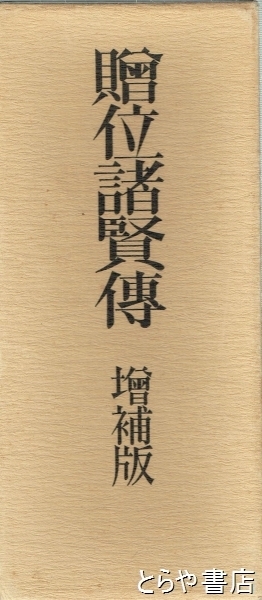 贈位諸賢傳
増補版
とらや書店